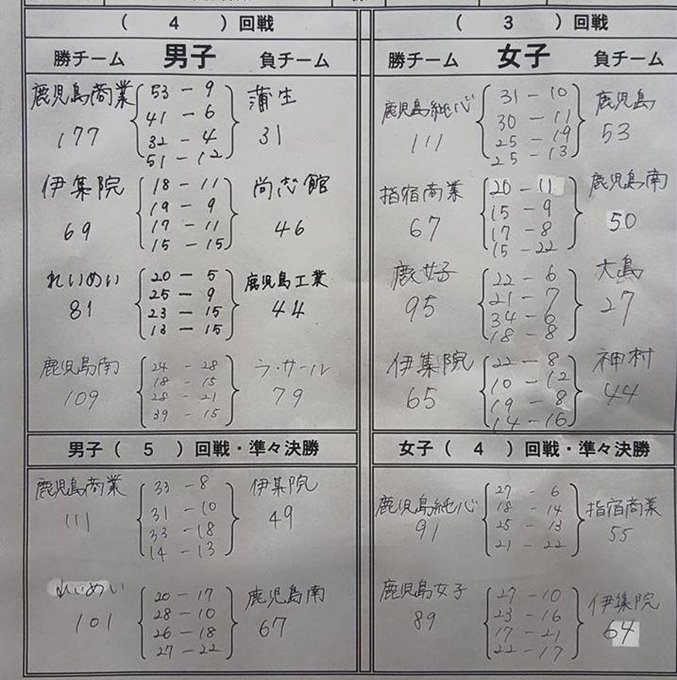 ( 4 )回戦
勝チーム 男子 負チーム
鹿児島商業 53 - 9 蒲生
177 41 - 6 31
32 - 4
51 - 12
伊集院 18 - 11 尚志館
69 19 - 9 46
17 - 11
15 - 15
れいめい 20 - 5 鹿児島工業
81 25 - 9 44
23 - 15
13 - 15
鹿児島南 24 - 28 ラ・サール
109 18 - 15 79
28 - 21
39 - 15
男子( 5 )回戦・準々決勝
鹿児島商業 33 - 8 伊集院
111 31 - 10 49
33 - 18
14 - 13
れいめい 20 - 17 鹿児島南
101 28 - 10 67
26 - 18
27 - 22
( 3 )回戦
勝チーム 女子 負チーム
鹿児島純心 31 - 10 鹿児島
111 30 - 11 53
25 - 19
25 - 13
指宿商業 20 - 11 鹿児島南
67 15 - 9 50
17 - 8
15 - 22
鹿女子 22 - 6 大島
95 21 - 7 27
34 - 6
18 - 8
伊集院 22 - 8 神村
65 10 - 12 44
19 - 8
14 - 16
女子( 4 )回戦・準々決勝
鹿児島純心 27 - 6 指宿商業
91 18 - 14 55
25 - 13
21 - 22
鹿児島女子 27 - 10 伊集院
89 23 - 16 64
17 - 21
22 - 17